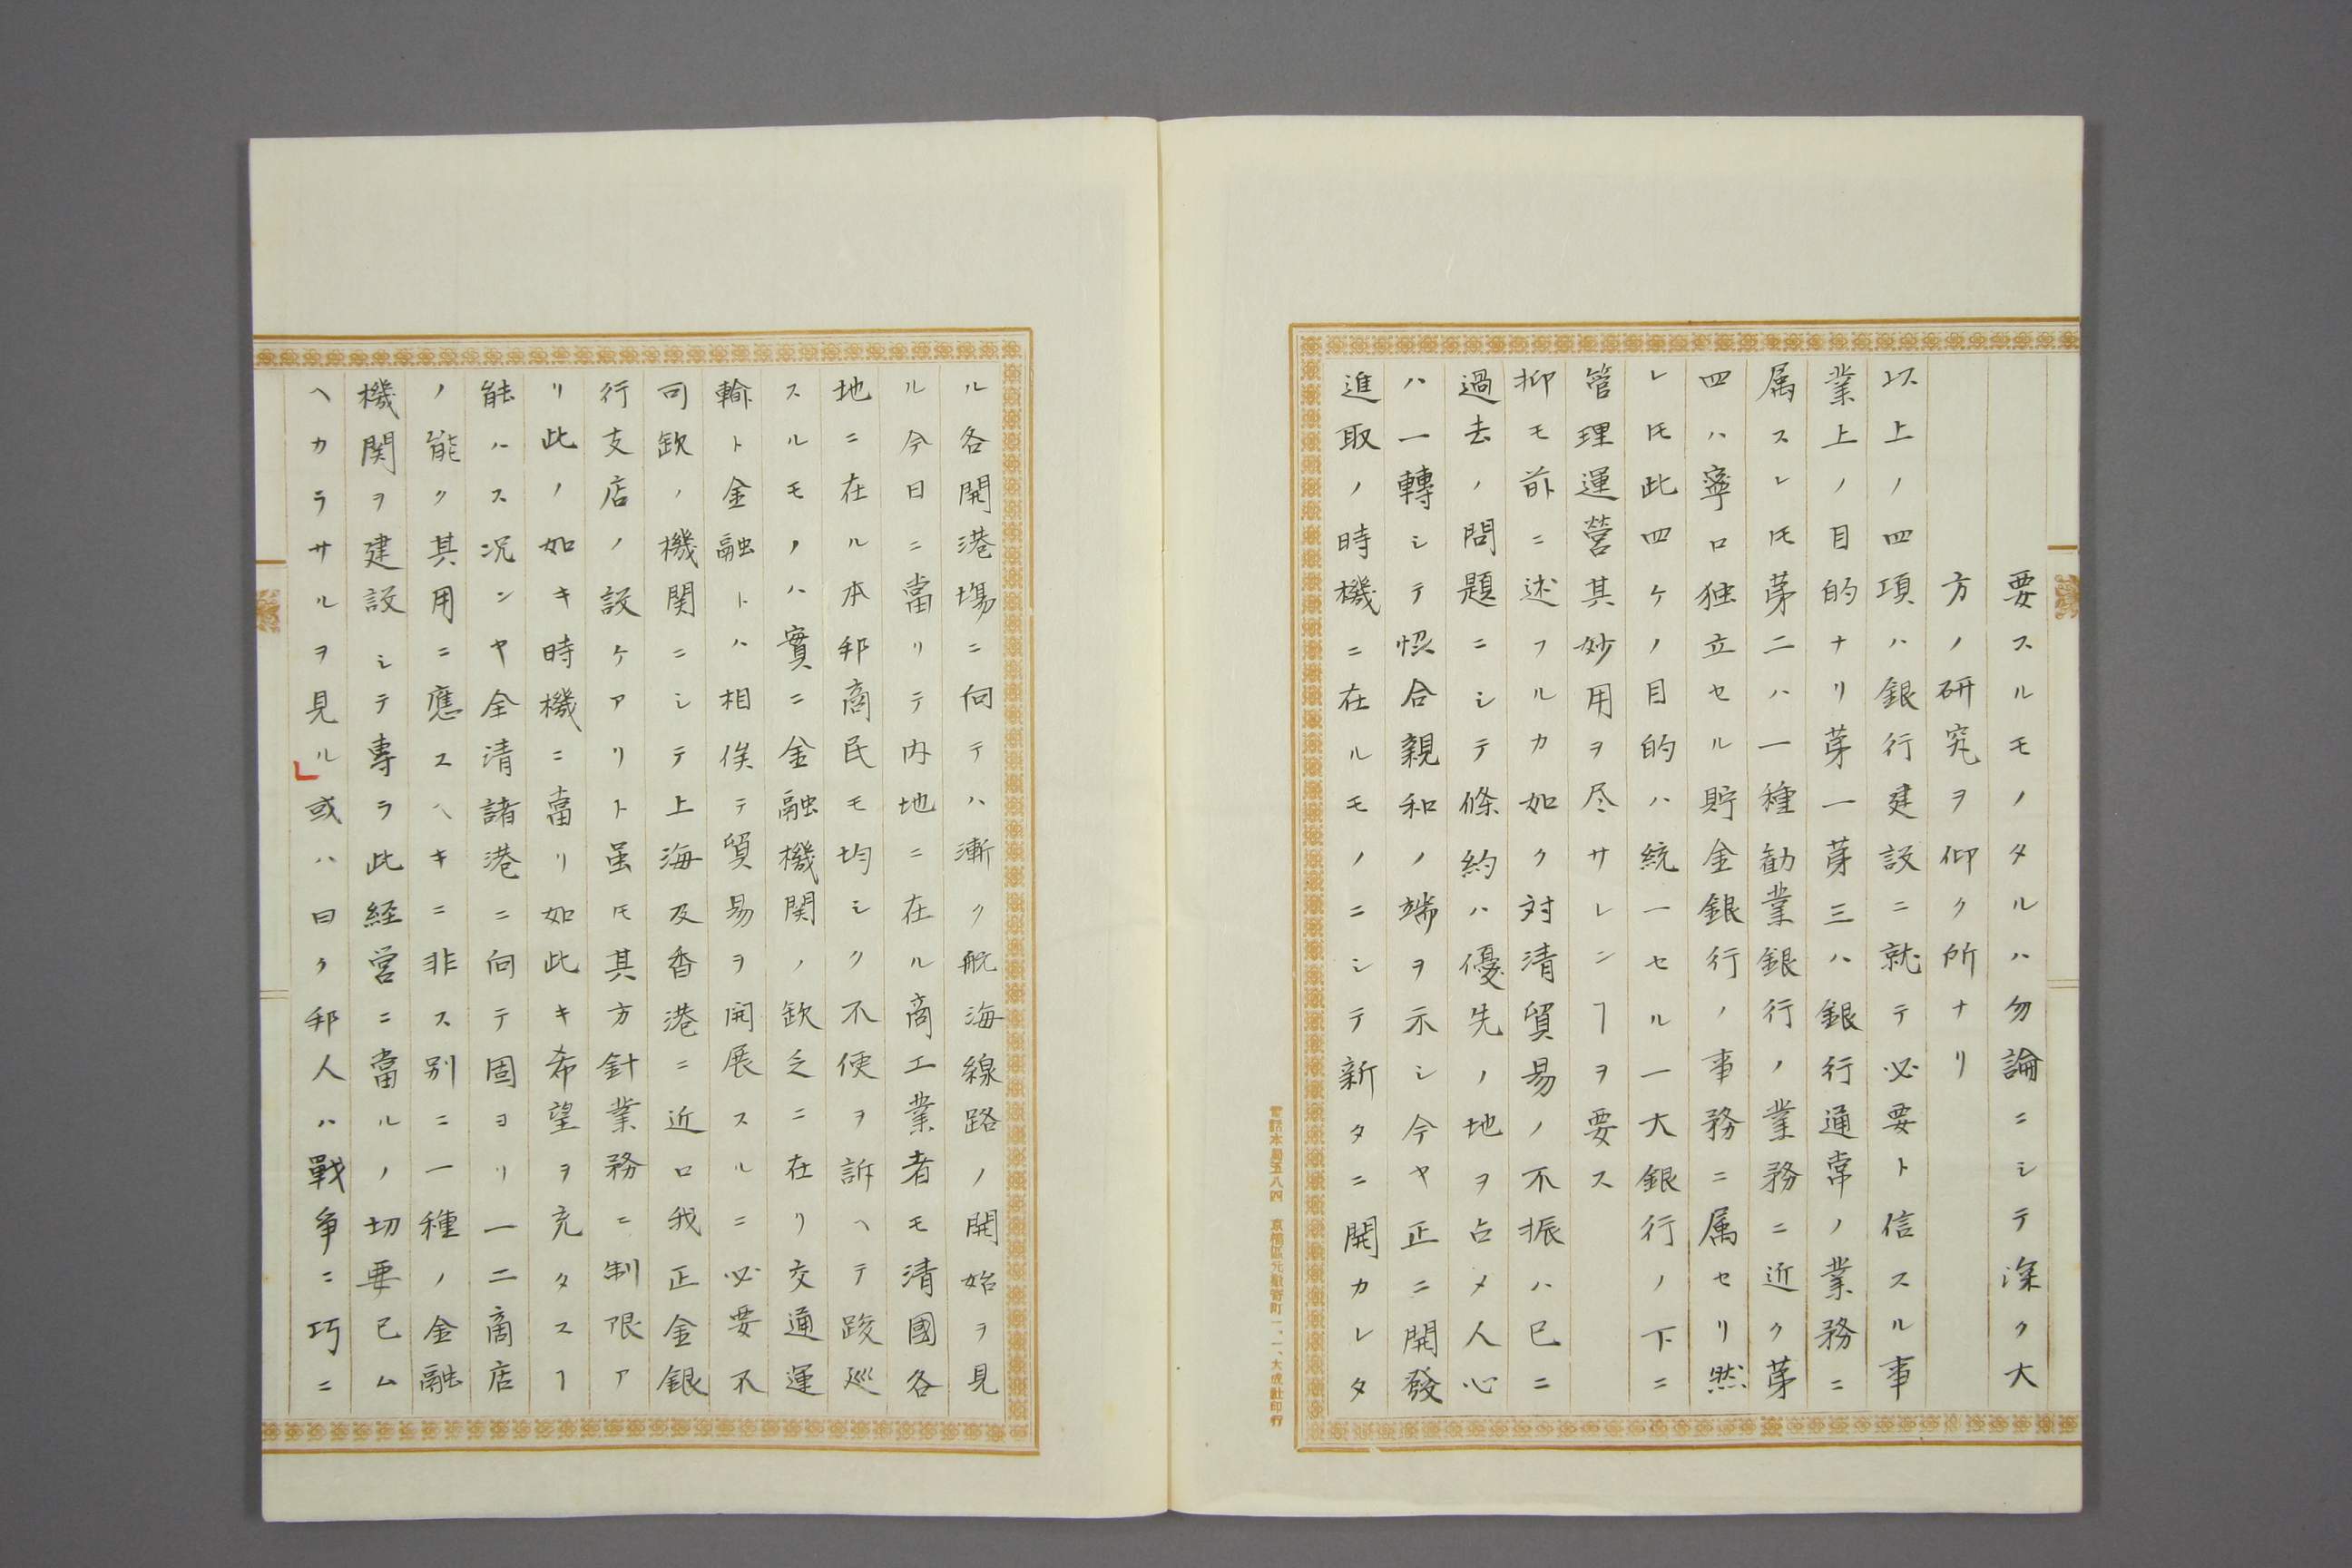 要スルモノタルハ勿論ニシテ深ク大
方ノ研究ヲ仰ク所ナリ
以上ノ四項ハ銀行建設ニ就テ必要ト信スル事
業上ノ目的ナリ苐一苐三ハ銀行通常ノ業務ニ
属スレ𪜈苐二ハ一種勧業銀行ノ業務ニ近ク苐
四ハ寧ロ独立セル貯金銀行ノ事務ニ属セリ然
レ𪜈此四ケノ目的ハ統一セル一大銀行ノ下ニ
管理運營其妙用ヲ尽サレンヿヲ要ス
抑モ前ニ述フルカ如ク対清貿易ノ不振ハ已ニ
過去ノ問題ニシテ條約ハ優先ノ地ヲ占メ人心
ハ一轉シテ怾合親和ノ端ヲ示シ今ヤ正ニ開發
進取ノ時機ニ在ルモノニシテ新タニ開カレタ
ル各開港塲ニ向テハ漸ク航海線路ノ開始ヲ見
ル今日ニ當リテ内地ニ在ル商工業者モ清國各
地ニ在ル本邦商民モ均シク不便ヲ訴ヘテ踆廵
スルモノハ實ニ金融機関ノ欽乏ニ在リ交通運
輸ト金融トハ相俟テ貿易ヲ開展スルニ必要不
可欽ノ機関ニシテ上海及香港ニ近ロ我正金銀
行支店ノ設ケアリト虽𪜈其方針業務ニ制限ア
リ此ノ如キ時機ニ當リ如此キ希望ヲ充タスヿ
能ハス况ンヤ全清諸港ニ向テ固ヨリ一二商店
ノ能ク其用ニ應スヘキニ非ス別ニ一種ノ金融
機関ヲ建設シテ専ラ此経営ニ當ルノ切要已ム
ヘカラサルヲ見ル」或ハ曰ク邦人ハ戰争ニ巧ニ
大成社印行